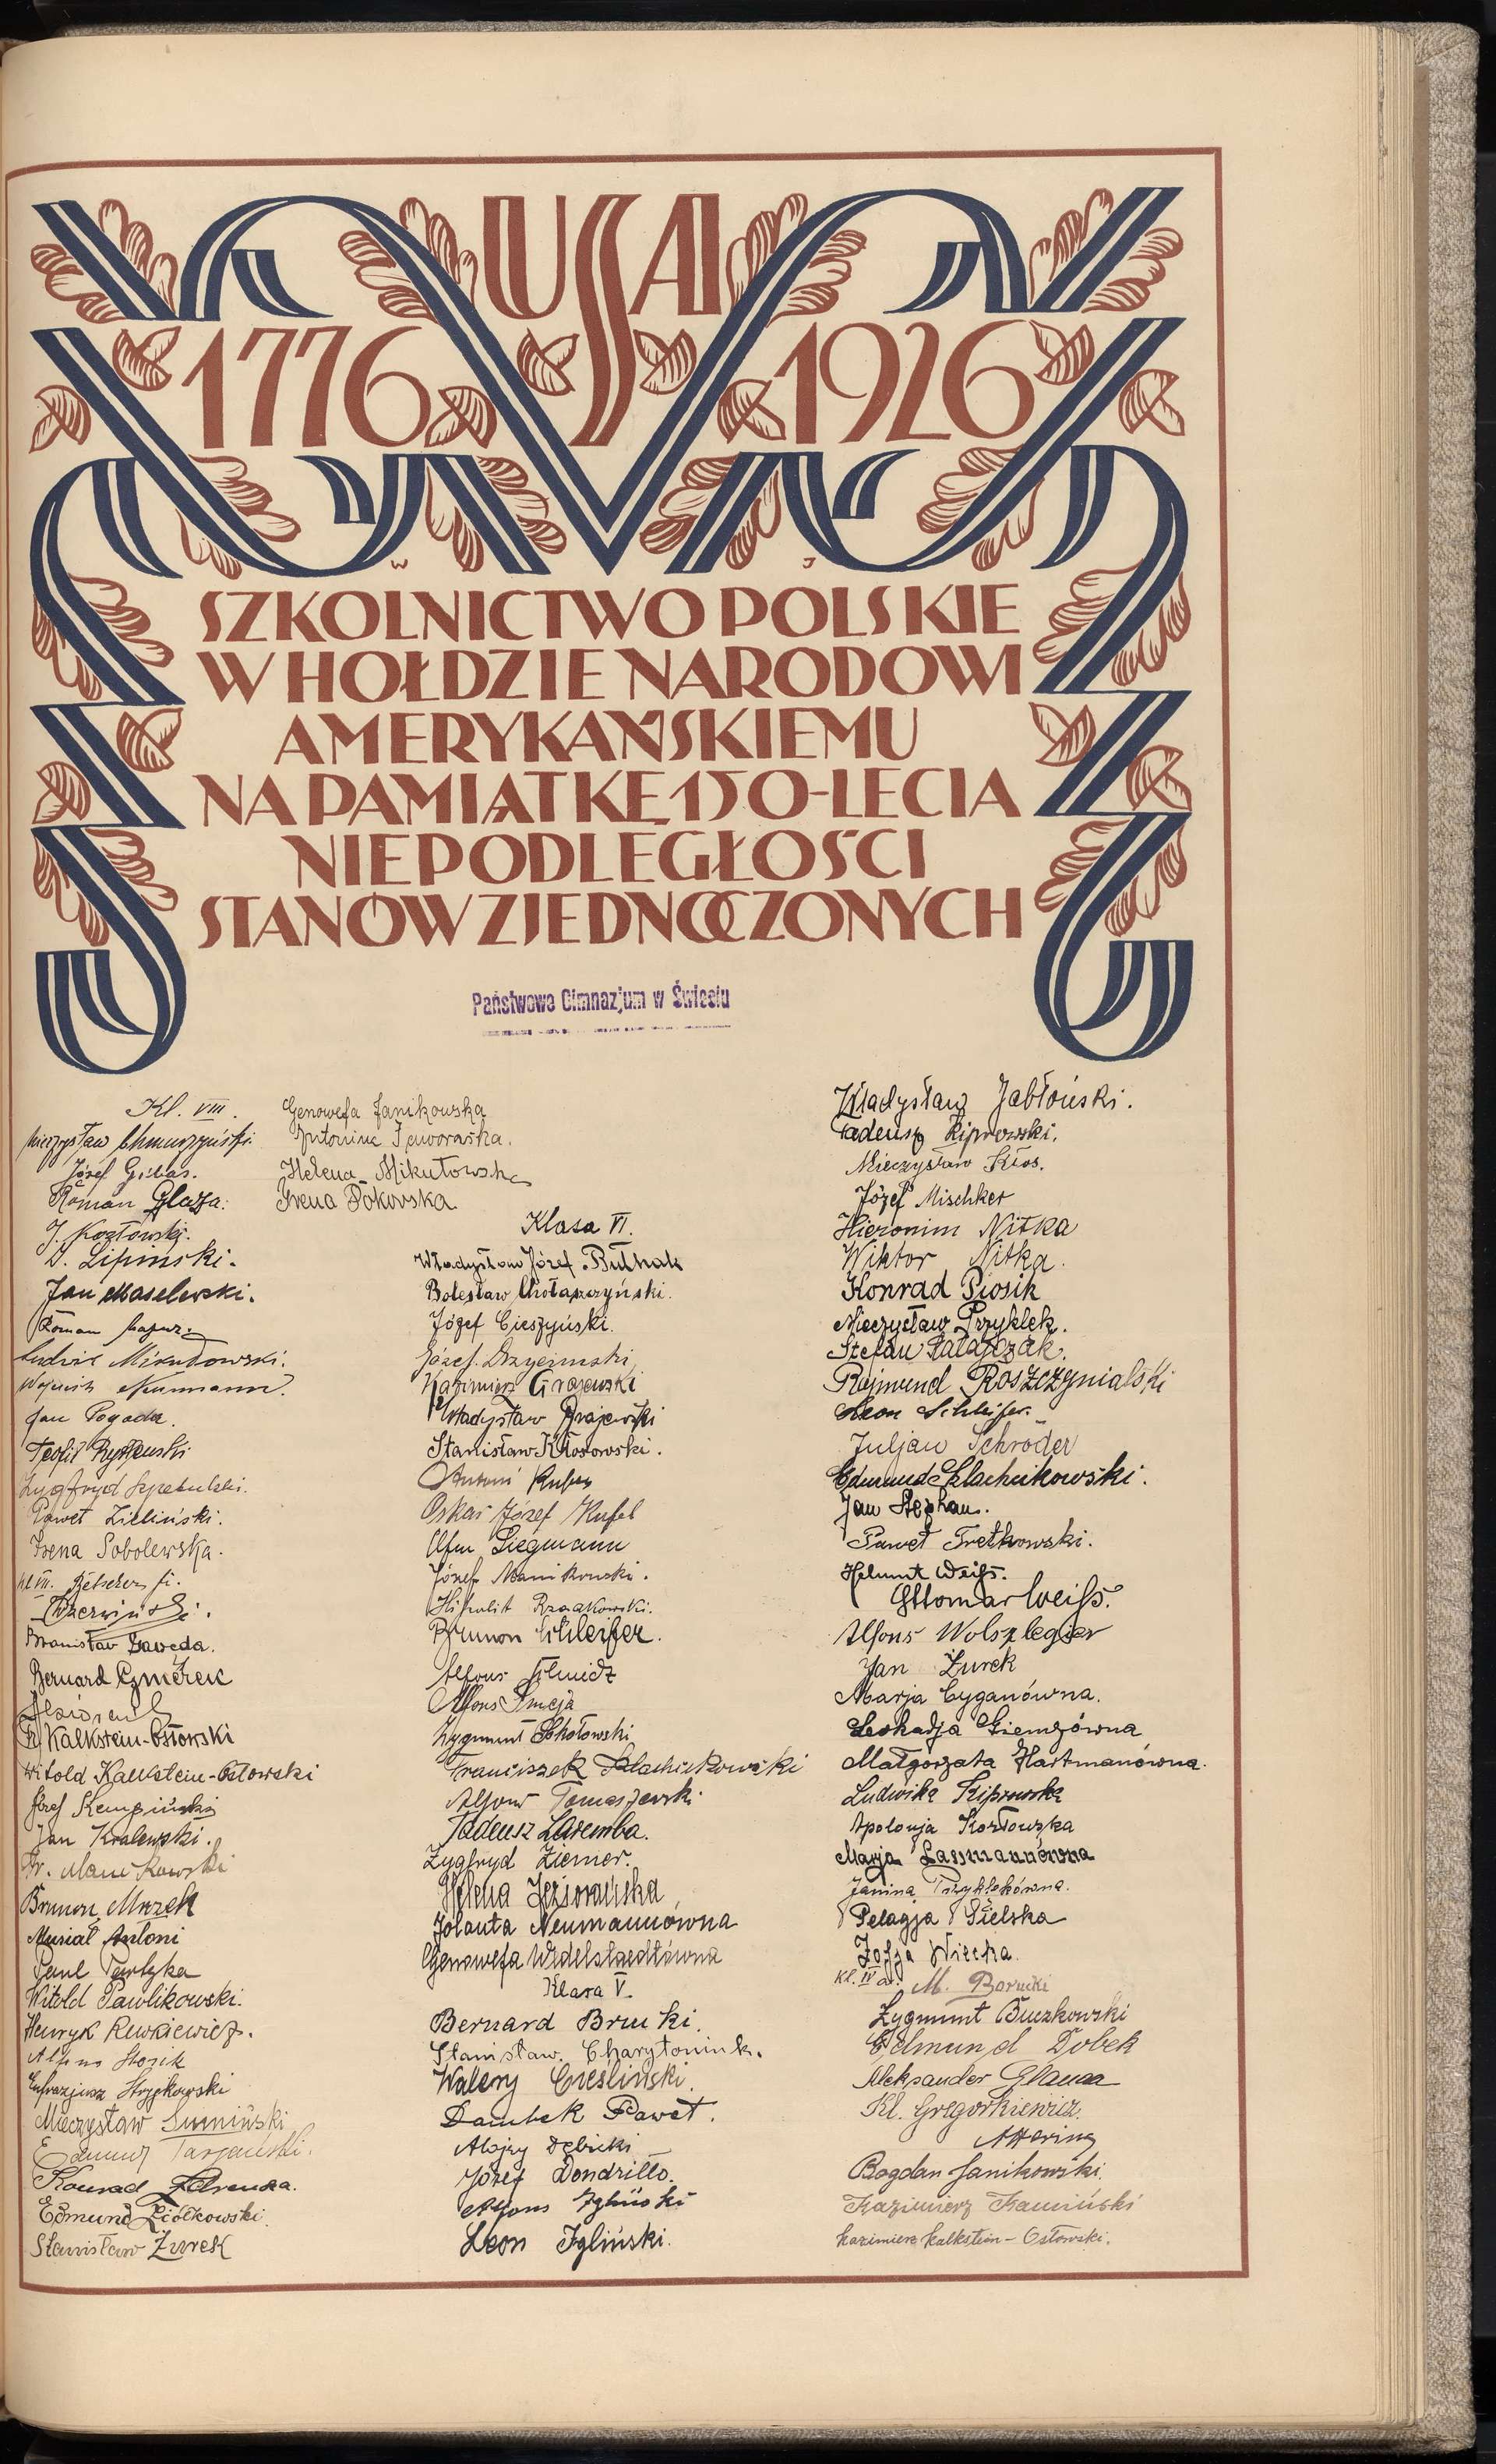 USA
1776 1926
W J
SZKOLNICTWO POLSKIE
W HOŁDZIE NARODOWI
AMERYKAŃSKIEMU
NA PAMIĄTKĘ 150-LECIA
NIEPODLEGŁOŚCI
STANÓW ZJEDNOCZONYCH
Państwowe Gimnazjum w Świeciu
Kl. VIII.
Mieczysław Chmurzyński
Józef Gibas.
Roman Glaza.
J. Kozłowski.
Lipinski.
Jan Maselewski.
Roman
Ludwik Mikułowski.
Wojciech Neumann.
Jan Pogoda.
Teofil
Zygfryd
Paweł Zieliński.
Irena Sobolewska.
kl VII.
Czerwiński.
Bronisław Zaweda.
Bernard
Kalkstein-Osłowski
Witold Kalkstein-Osłowski
Józef Kempiński
Jan Kralewski.
Fr. Manikowski
Brunon Mrozek
Musiał Antoni
Paul Partyka
Witold Pawlikowski.
Henryk Rewkiewicz.
Alfons
Eufrazjusz Stryjkowski
Mieczysław Sumiński
Edmund Tarjański.
Konrad
Edmund Ziółkowski.
Stanisław Żurek
Genowefa Janikowska
Antonina Jaworska.
Helena Mikułowska
Irena Pokovska
Klasa VI.
Władysław Józef Bułhak
Bolesław Chołaszczyński.
Józef Cieszyński.
Józef
Kazimierz Grajewski
Władysław Grajewski
Stanisław Kłosowski.
Antoni Kufel
Oskar Józef Kufel
Liegmann
Józef Manikowski.
Hipolit Rzadkowski.
Brunon Schleifer.
Alfons Schmidt
Alfons Smeja
Zygmunt Sokołowski
Franciszek Szlachcikowski
Alfons Tomaszewski
Tadeusz Zaremba.
Zygfryd Ziemer.
Helena Jeziorańska
Jolanta Neumannówna
Genowefa Widelstaedtówna
Klasa V.
Bernard Brucki.
Stanisław Charytoniuk.
Walery Cieśliński.
Dambek Paweł.
Alojzy Dębicki
Józef Dondrillo.
Alfons Igliński
Leon Igliński.
Władysław Jabłoński.
Tadeusz Kiprowski.
Mieczysław Kłos.
Józef Mischker
Hieronim Nitka
Wiktor Nitka.
Konrad Piosik
Mieczysław Przyklek.
Stefan Ratajczak.
Rajmund Roszczynialski
Leon Schleifer.
Juljan Schröder
Edmund Szlachcikowski.
Jan Stephan.
Paweł Tretkowski.
Helmut Weiß.
Ottomar Weiß.
Alfons Wolszlegier
Jan Żurek
Marja Cyganówna.
Leokadja Giemzówna
Małgorzata Hartmanówna.
Ludwika Kiprowska
Apolonja Kozłowska
Marja Lassmannówna
Janina Przyklekówna.
Pelagja Sielska
Zofja Wiecka.
Kl. IV a. M. Borucki
Zygmunt Buczkowski
Edmund Dobek
Aleksander Glama
Kl. Gregorkiewicz.
A Hering
Bogdan Janikowski.
Kazimierz Kamiński
Kazimierz Kalkstein-Osłowski.